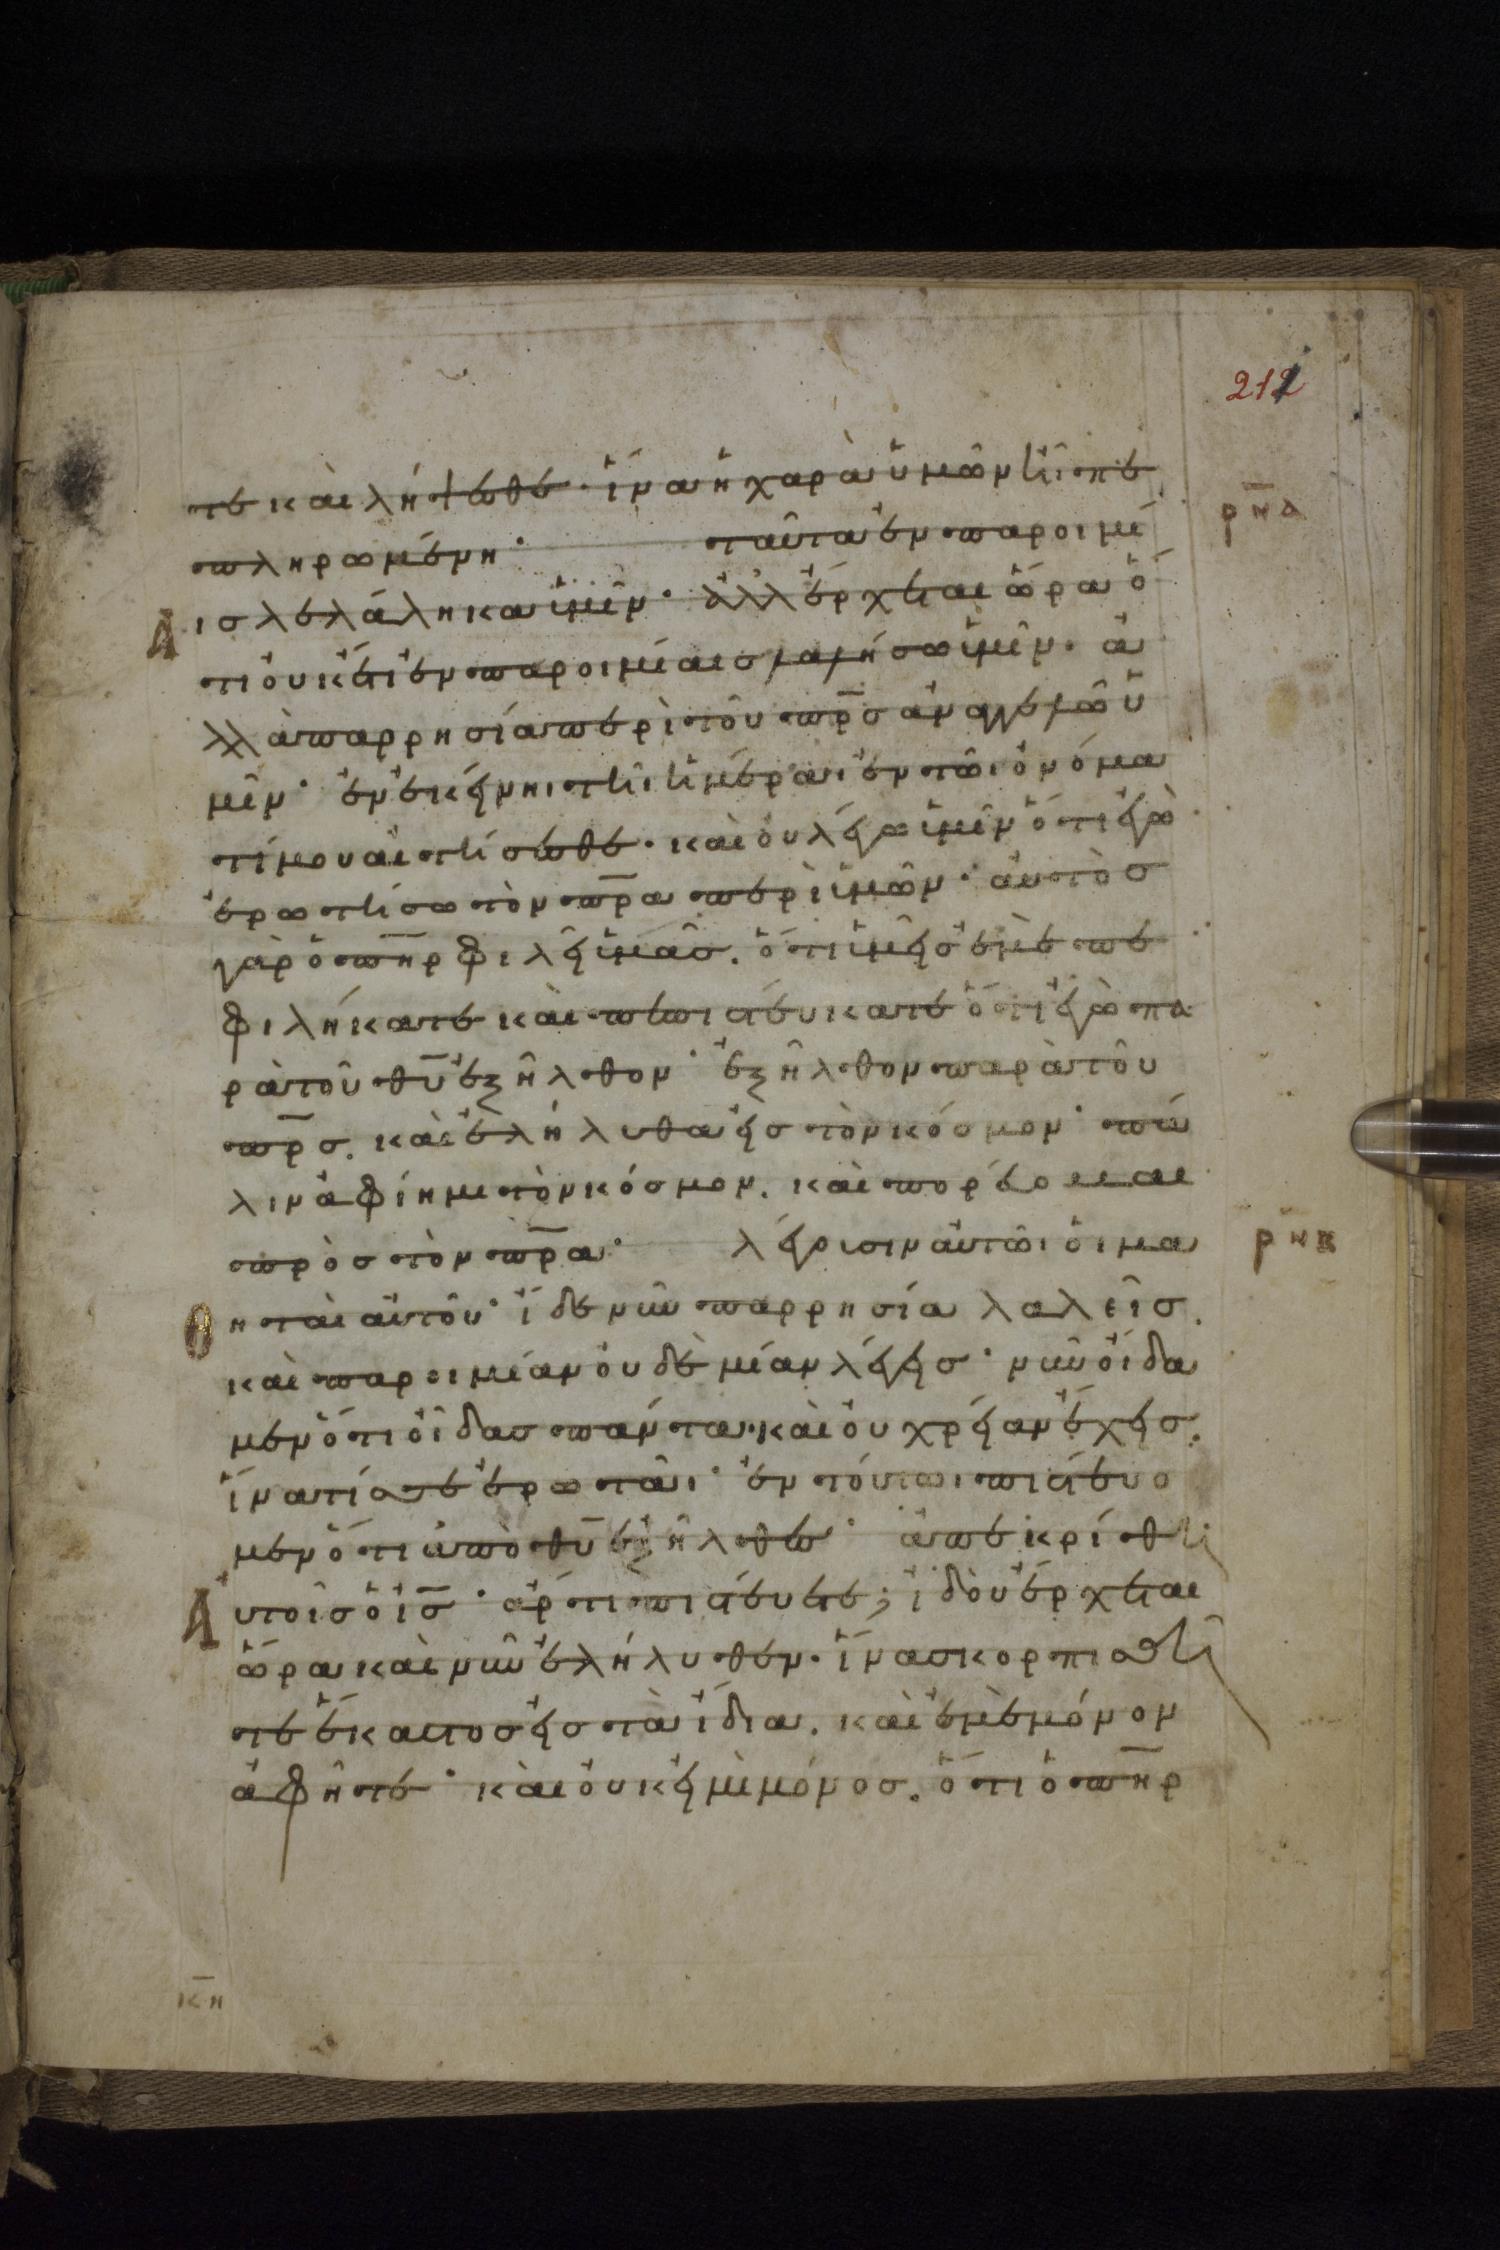 212
τε καὶ λήψεσθε· ἵνα ἡ χαρὰ ὑμῶν ἦι πε
πληρωμένη· ταῦτα ἐν παροιμί
ρν̅α
Α ισ λελάληκα ὑμῖν· ἀλλ ἔρχεται ὥρα ὅ
τι οὐκέτι ἐν παροιμίαισ λαλήσω ὑμῖν· ἀ
λλὰ παρρησία περὶ τοῦ πρ̅σ ἀναγγελῶ ὑ
μῖν· ἐν ἐκείνηι τῆι ἡμέραι ἐν τῶι ὀνόμα
τί μου αἰτήσεσθε· καὶ οὐ λέγω ὑμῖν ὅτι ἐγὼ
ἐρωτήσω τὸν πρ̅α περὶ ὑμῶν· αὐτὸσ
γὰρ ὁ πη̅ρ φιλεῖ ὑμᾶσ. ὅτι ὑμεῖσ ἐμὲ πε
φιλήκατε καὶ πεπιστεύκατε ὅτι ἐγὼ πα
ρὰ τοῦ θυ̅ ἐξῆλθον· ἐξῆλθον παρὰ τοῦ
πρ̅σ. καὶ ἐλήλυθα εἰσ τὸν κόσμον· πά
λιν ἀφίημι τὸν κόσμον. καὶ πορεύομαι
πρὸσ τὸν πρ̅α· λέγουσιν αὐτῶι οἱ μα
ρν̅β
Θ ηταὶ αὐτοῦ· ἴδε νῦν παρρησία λαλεῖσ.
καὶ παροιμίαν οὐδὲ μίαν λέγεισ· νῦν οἴδα
μεν ὅτι οἶδασ πάντα· καὶ οὐ χρείαν ἔχεισ.
ἵνα τίσ σε ἐρωτᾶι· ἐν τούτωι πιστεύο
μεν ὅτι ἀπὸ θυ̅ ἐξῆλθεσ· ἀπεκρίθη
Α ὐτοῖσ ὁ ισ̅· ἄρτι πιστεύετε; ἰδοὺ ἔρχεται
ὥρα καὶ νῦν ἐλήλυθεν· ἵνα σκορπισθῆ
τε ἕκαστοσ εἰσ τὰ ἴδια. καὶ ἐμὲ μόνον
ἀφῆτε· καὶ οὐκ εἰμὶ μόνοσ. ὅτι ὁ πη̅ρ
κ̅η